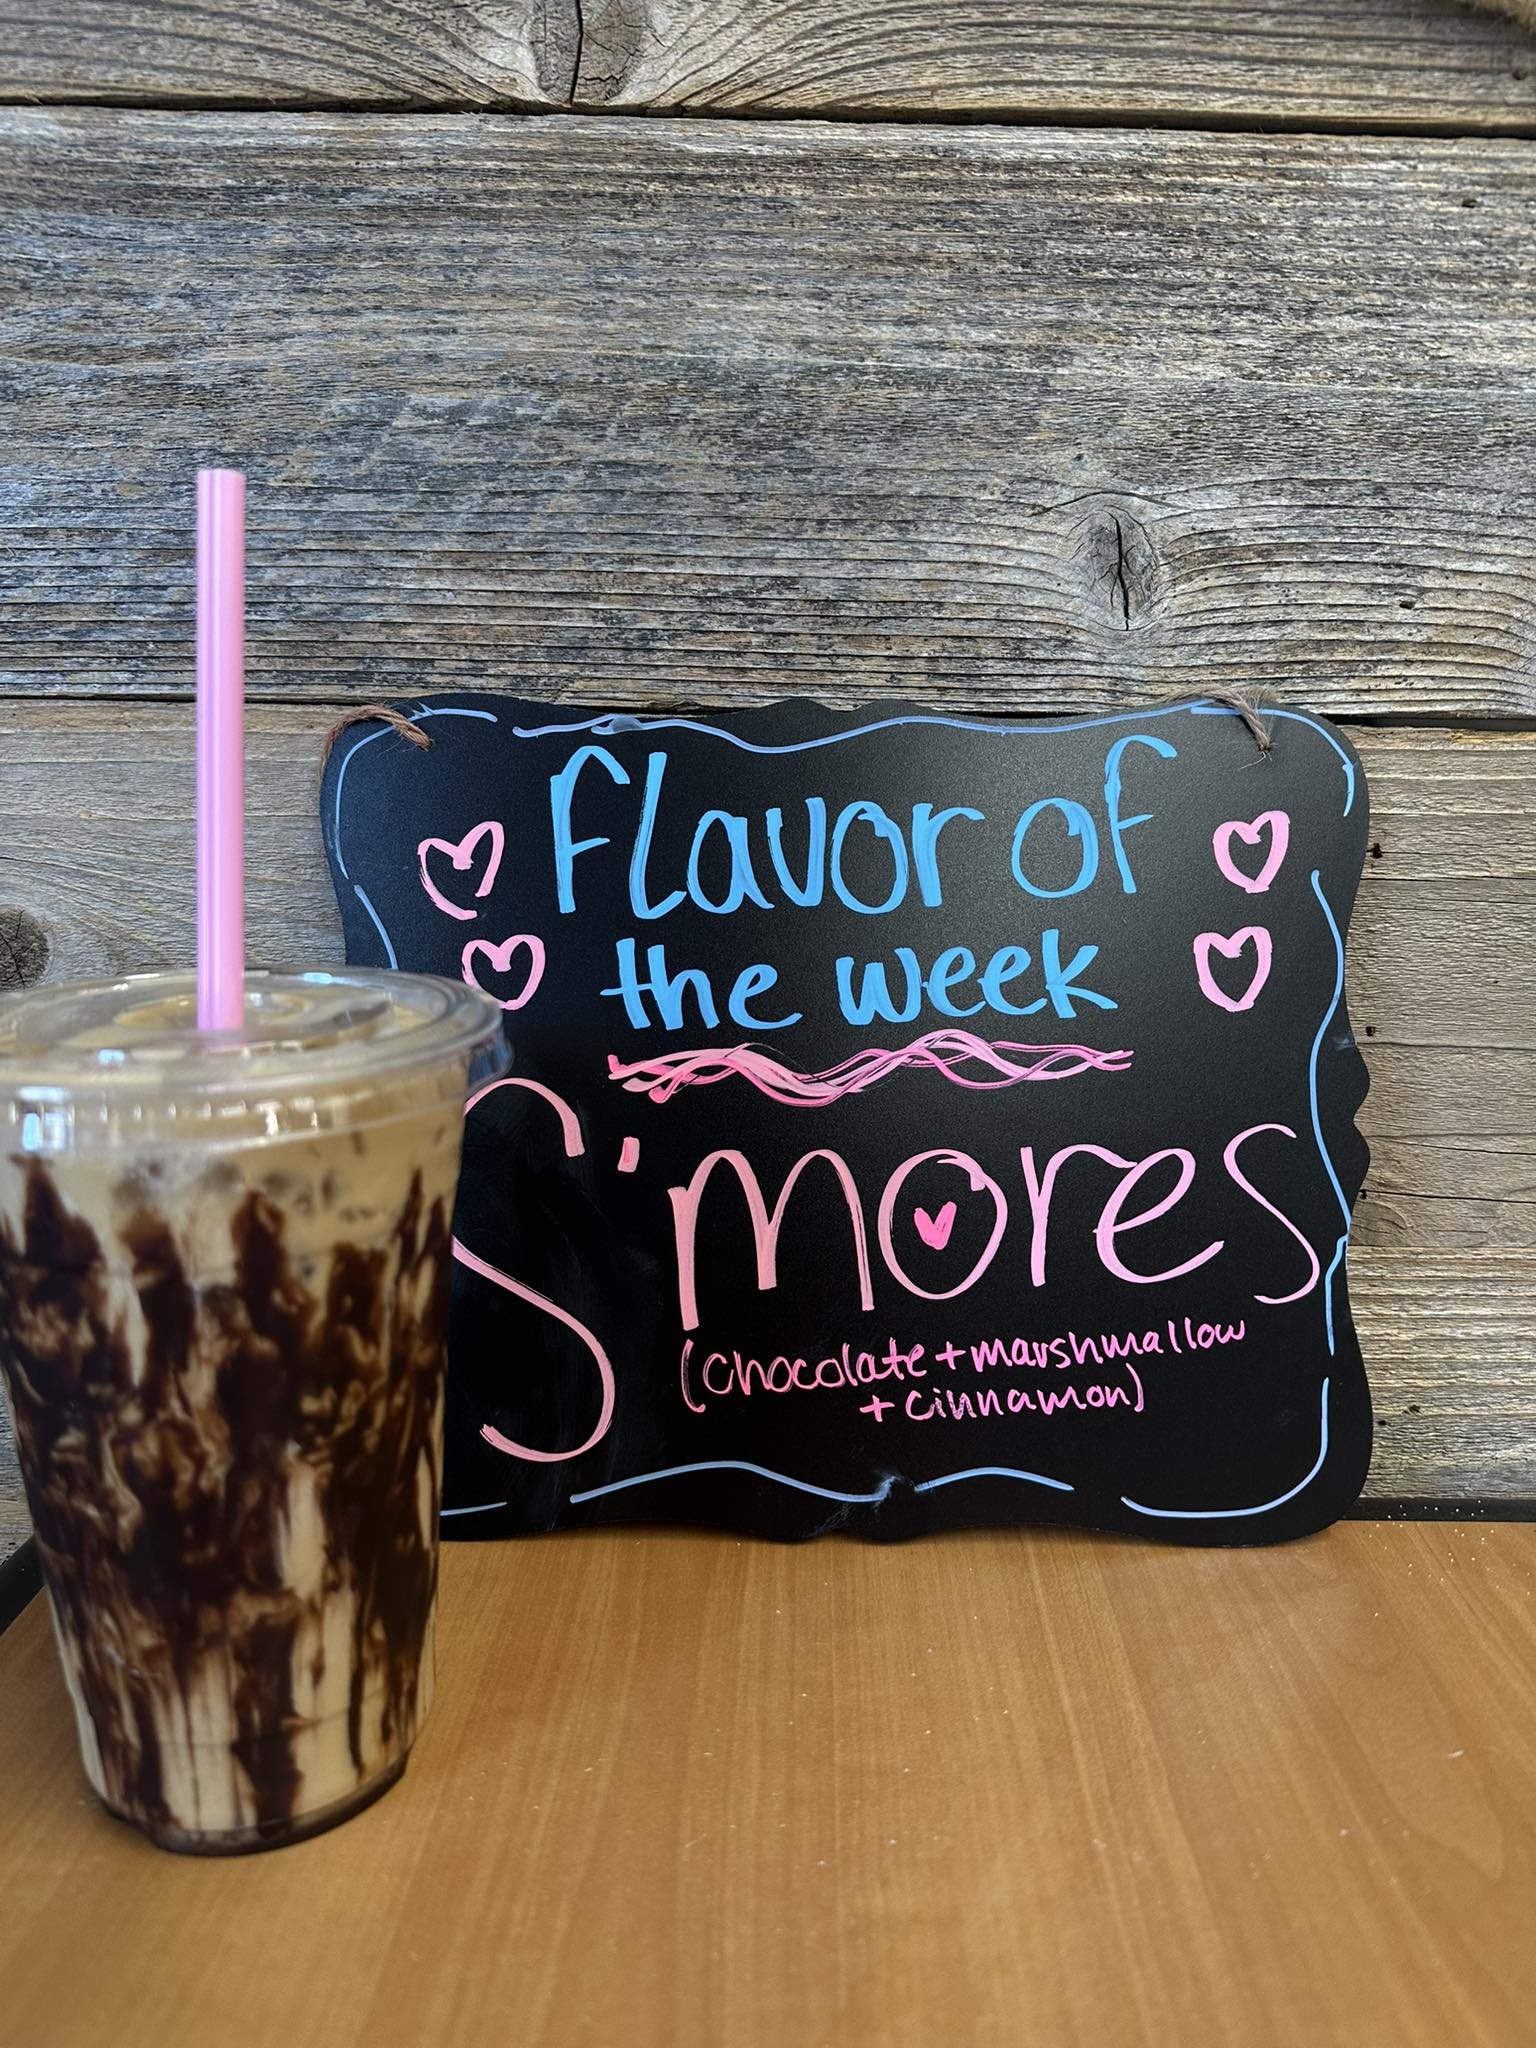 flavor of
the week
S'mores
(chocolate + marshmallow
+ cinnamon)